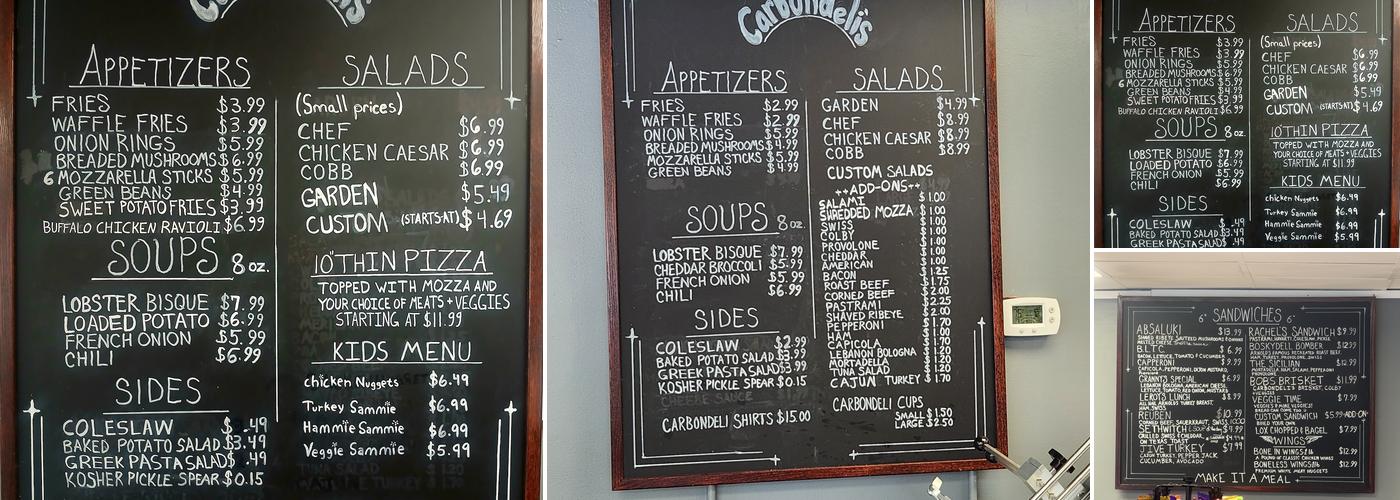 APPETIZERS
FRIES $3.99
WAFFLE FRIES $3.99
ONION RINGS $5.99
BREADED MUSHROOMS $6.99
6 MOZZARELLA STICKS $5.99
GREEN BEANS $4.99
SWEET POTATO FRIES $3.99
BUFFALO CHICKEN RAVIOLI $6.99
SOUPS 8 oz.
LOBSTER BISQUE $7.99
LOADED POTATO $6.99
FRENCH ONION $5.99
CHILI $6.99
SIDES
COLESLAW $ .49
BAKED POTATO SALAD $3.49
GREEK PASTA SALAD $ .49
KOSHER PICKLE SPEAR $0.15
SALADS
(Small prices)
CHEF $6.99
CHICKEN CAESAR $6.99
COBB $6.99
GARDEN $5.49
CUSTOM (STARTS AT) $4.69
10" THIN PIZZA
TOPPED WITH MOZZA AND
YOUR CHOICE OF MEATS + VEGGIES
STARTING AT $11.99
KIDS MENU
Chicken Nuggets $6.49
Turkey Sammie $6.99
Hammie Sammie $6.99
Veggie Sammie $5.99
Carbondeli's
APPETIZERS
FRIES $2.99
WAFFLE FRIES $2.99
ONION RINGS $5.99
BREADED MUSHROOMS $4.99
MOZZARELLA STICKS $5.99
GREEN BEANS $4.99
SOUPS 8 oz.
LOBSTER BISQUE $7.99
CHEDDAR BROCCOLI $5.99
FRENCH ONION $5.99
CHILI $6.99
SIDES
COLESLAW $2.99
BAKED POTATO SALAD $3.99
GREEK PASTA SALAD $3.99
KOSHER PICKLE SPEAR $0.15
CARBONDELI SHIRTS $15.00
SALADS
GARDEN $4.99
CHEF $8.99
CHICKEN CAESAR $8.99
COBB $8.99
CUSTOM SALADS
++ADD-ONS++
SALAMI $1.00
SHREDDED MOZZA $1.00
SWISS $1.00
COLBY $1.00
PROVOLONE $1.00
CHEDDAR $1.00
AMERICAN $1.00
BACON $1.25
ROAST BEEF $1.75
CORNED BEEF $2.00
PASTRAMI $2.25
SHAVED RIBEYE $2.00
PEPPERONI $1.70
HAM $1.00
CAPICOLA $1.70
LEBANON BOLOGNA $1.20
MORTADELLA $1.20
TUNA SALAD $1.20
CAJUN TURKEY $1.70
CARBONDELI CUPS
SMALL $1.50
LARGE $2.50
APPETIZERS
FRIES $3.99
WAFFLE FRIES $3.99
ONION RINGS $5.99
BREADED MUSHROOMS $6.99
6 MOZZARELLA STICKS $5.99
GREEN BEANS $4.99
SWEET POTATO FRIES $3.99
BUFFALO CHICKEN RAVIOLI $6.99
SOUPS 8 oz.
LOBSTER BISQUE $7.99
LOADED POTATO $6.99
FRENCH ONION $5.99
CHILI $6.99
SIDES
COLESLAW $ .49
BAKED POTATO SALAD $3.49
GREEK PASTA SALAD $ .49
SALADS
(Small prices)
CHEF $6.99
CHICKEN CAESAR $6.99
COBB $6.99
GARDEN $5.49
CUSTOM (STARTS AT) $4.69
10" THIN PIZZA
TOPPED WITH MOZZA AND
YOUR CHOICE OF MEATS + VEGGIES
STARTING AT $11.99
KIDS MENU
Chicken Nuggets $6.49
Turkey Sammie $6.99
Hammie Sammie $6.99
Veggie Sammie $5.99
6" SANDWICHES 6"
ABSALUKI $13.99
B.L.T.C. $6.99
BACON, LETTUCE, TOMATO & CUCUMBER
CAPPERONI $9.99
CAPICOLA, PEPPERONI, DIJON MUSTARD,
GRANNY'S SPECIAL $6.99
LEBANON BOLOGNA, AMERICAN CHEESE,
LETTUCE, TOMATO, RED ONION, MUSTARD
LEROY'S LUNCH $8.99
HAM, SWISS
REUBEN $10.99
CORNED BEEF, SAUERKRAUT, SWISS, 1000
SETHWITCH
GRILLED SWISS & CHEDDAR
ON TEXAS TOAST
JIVE TURKEY $7.99
CAJUN TURKEY, PEPPER JACK
CUCUMBER, AVOCADO
RACHEL'S SANDWICH $9.99
BOSKYDELL BOMBER $12.99
THE SICILIAN $12.99
MORTADELLA, HAM, SALAMI, PEPPERONI
PROVOLONE
BOB'S BRISKET $11.99
CARBONDELI'S BRISKET COLBY
VEGGIE TIME $7.99
CUSTOM SANDWICH $5.99+ADD-ON
BUILD YOUR OWN
LOX CHOPPED & BAGEL $7.99
WINGS
BONE IN WINGS 1 lb $12.99
BONELESS WINGS 1 lb $12.99
MAKE IT A MEAL